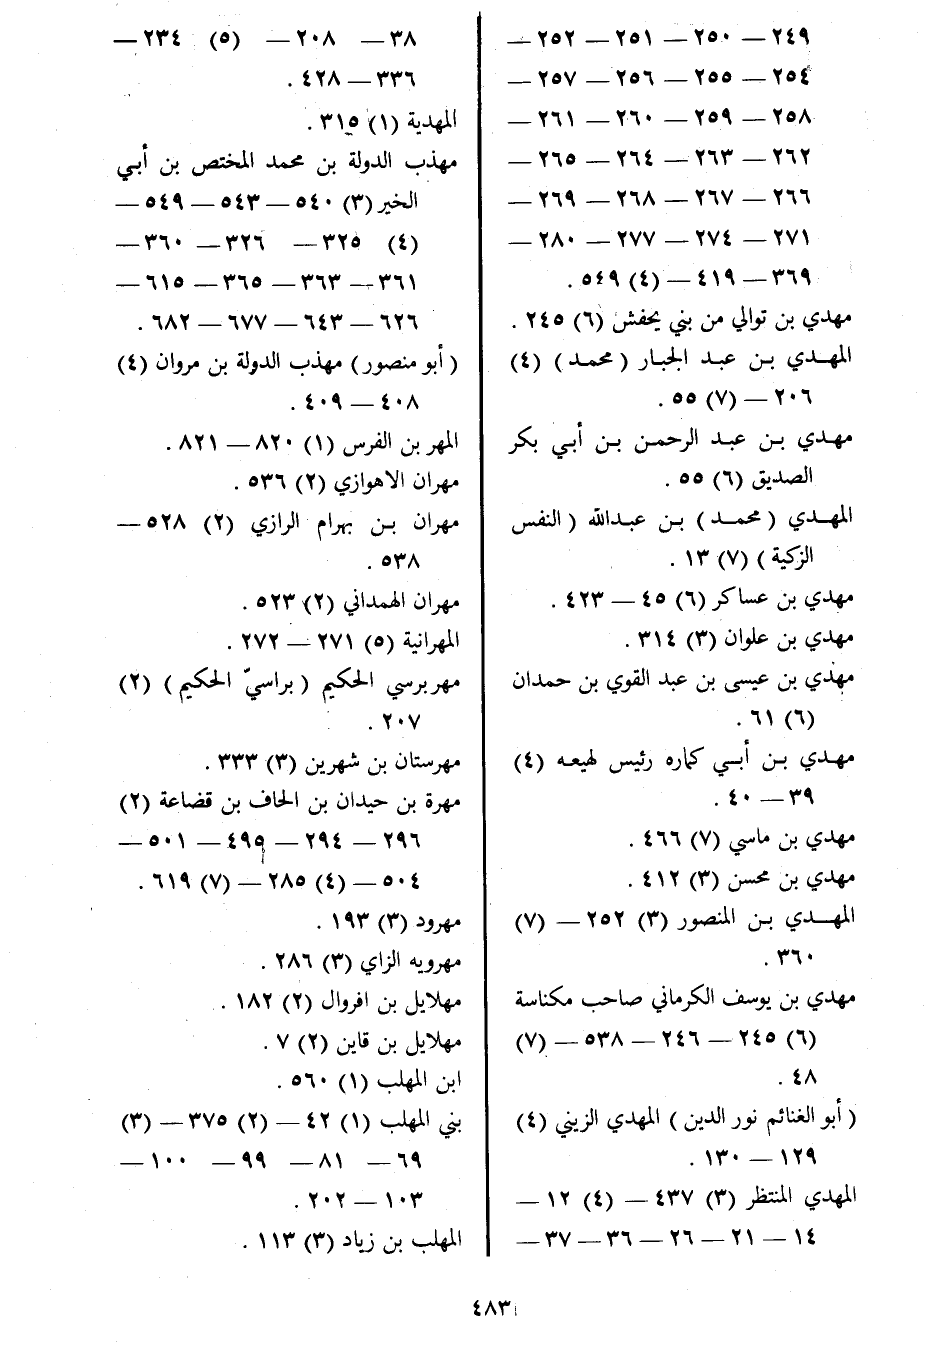 ٢٤٩ — ٢٥٠ — ٢٥١ — ٢٥٢ —
٢٥٤ — ٢٥٥ — ٢٥٦ — ٢٥٧ —
٢٥٨ — ٢٥٩ — ٢٦٠ — ٢٦١ —
٢٦٢ — ٢٦٣ — ٢٦٤ — ٢٦٥ —
٢٦٦ — ٢٦٧ — ٢٦٨ — ٢٦٩ —
٢٧١ — ٢٧٤ — ٢٧٧ — ٢٨٠ —
٣٦٩ — ٤١٩ — (٤) ٥٤٩ .
مهدي بن توالي من بني يحفش (٦) ٢٤٥ .
المهدي بن عبد الجبار ( محمد ) (٤)
٢٠٦ — (٧) ٥٥ .
مهدي بن عبد الرحمن بن أبي بكر
الصديق (٦) ٥٥ .
المهدي ( محمد ) بن عبدالله ( النفس
الزكية ) (٧) ١٣ .
مهدي بن عساكر (٦) ٤٥ — ٤٢٣ .
مهدي بن علوان (٣) ٣١٤ .
مهدي بن عيسى بن عبد القوي بن حمدان
(٦) ٦١ .
مهدي بن أبي كماره رئيس لهيعه (٤)
٣٩ — ٤٠ .
مهدي بن ماسي (٧) ٤٦٦ .
مهدي بن محسن (٣) ٤١٢ .
المهدي بن المنصور (٣) ٢٥٢ — (٧)
٣٦٠ .
مهدي بن يوسف الكرماني صاحب مكناسة
(٦) ٢٤٥ — ٢٤٦ — ٥٣٨ — (٧)
٤٨ .
( أبو الغنائم نور الدين ) المهدي الزيني (٤)
١٢٩ — ١٣٠ .
المهدي المنتظر (٣) ٤٣٧ — (٤) ١٢ —
١٤ — ٢١ — ٢٦ — ٣٦ — ٣٧ —
٣٨ — ٢٠٨ — (٥) ٢٣٤ —
٣٣٦ — ٤٢٨ .
المهدية (١) ٣١٥ .
مهذب الدولة بن محمد المختص بن أبي
الخير (٣) ٥٤٠ — ٥٤٣ — ٥٤٩ —
(٤) ٣٢٥ — ٣٢٦ — ٣٦٠ —
٣٦١ — ٣٦٣ — ٣٦٥ — ٦١٥ —
٦٢٦ — ٦٤٣ — ٦٧٧ — ٦٨٢ .
( أبو منصور ) مهذب الدولة بن مروان (٤)
٤٠٨ — ٤٠٩ .
المهر بن الفرس (١) ٨٢٠ — ٨٢١ .
مهران الاهوازي (٢) ٥٣٦ .
مهران بن بهرام الرازي (٢) ٥٢٨ —
٥٣٨ .
مهران الهمداني (٢) ٥٢٣ .
المهرانية (٥) ٢٧١ — ٢٧٢ .
مهربرسي الحكيم ( براسيّ الحكيم ) (٢)
٢٠٧ .
مهرستان بن شهرين (٣) ٣٣٣ .
مهرة بن حيدان بن الحاف بن قضاعة (٢)
٢٩٦ — ٢٩٤ — ٤٩٥ — ٥٠١ —
٥٠٤ — (٤) ٢٨٥ — (٧) ٦١٩ .
مهرود (٣) ١٩٣ .
مهرويه الزاي (٣) ٢٨٦ .
مهلايل بن افروال (٢) ١٨٢ .
مهلايل بن قاين (٢) ٧ .
ابن المهلب (١) ٥٦٠ .
بني المهلب (١) ٤٢ — (٢) ٣٧٥ — (٣)
٦٩ — ٨١ — ٩٩ — ١٠٠ —
١٠٣ — ٢٠٢ .
المهلب بن زياد (٣) ١١٣ .
٤٨٣